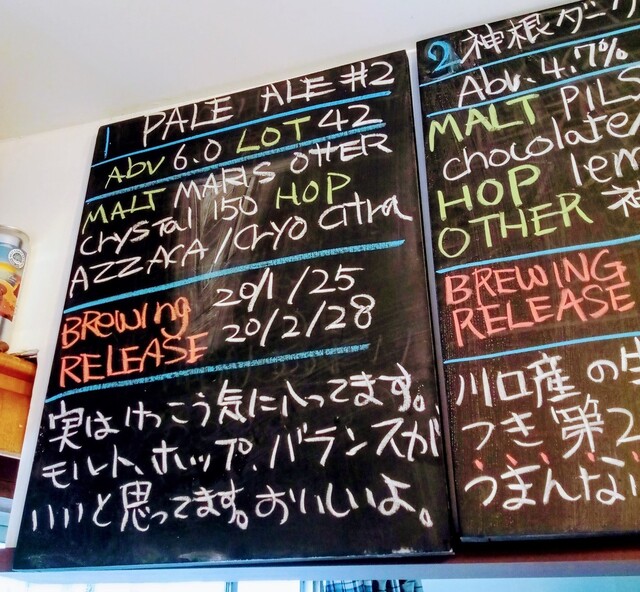 1 PALE ALE #2
ABV 6.0 LOT 42
MALT MARIS OTTER
CRYSTAL 150 HOP
AZZACA / CRYO Citra
BREWING 20/1/25
RELEASE 20/2/28
実はけっこう気に入ってます。
モルト、ホップ、バランスが
いいと思ってます。おいしいよ。
2 神根ダーク
Abv. 4.7%
MALT PILS
chocolate/
HOP lem
OTHER 神
BREWING
RELEASE
川口産の生
つき 第2
うまんない